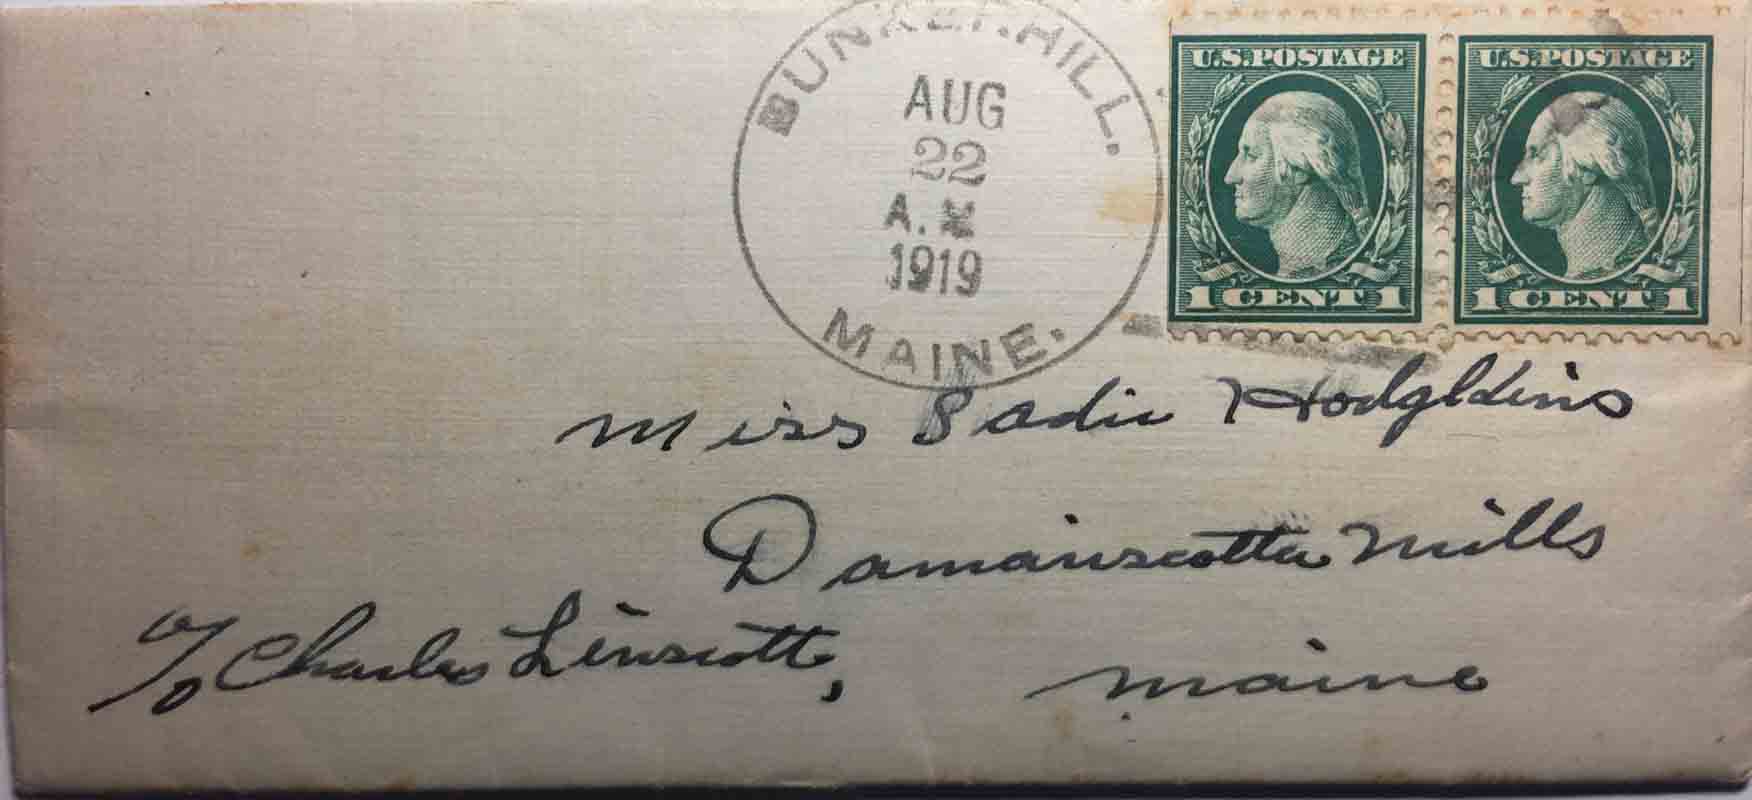 BUNKER.HILL.
AUG
22
A.M
1919
MAINE.
U.S.POSTAGE
1 CENT 1
U.S.POSTAGE
1 CENT 1
Miss Sadie Hodgkins
Damariscotta Mills
c/o Charles Linscott,
Maine